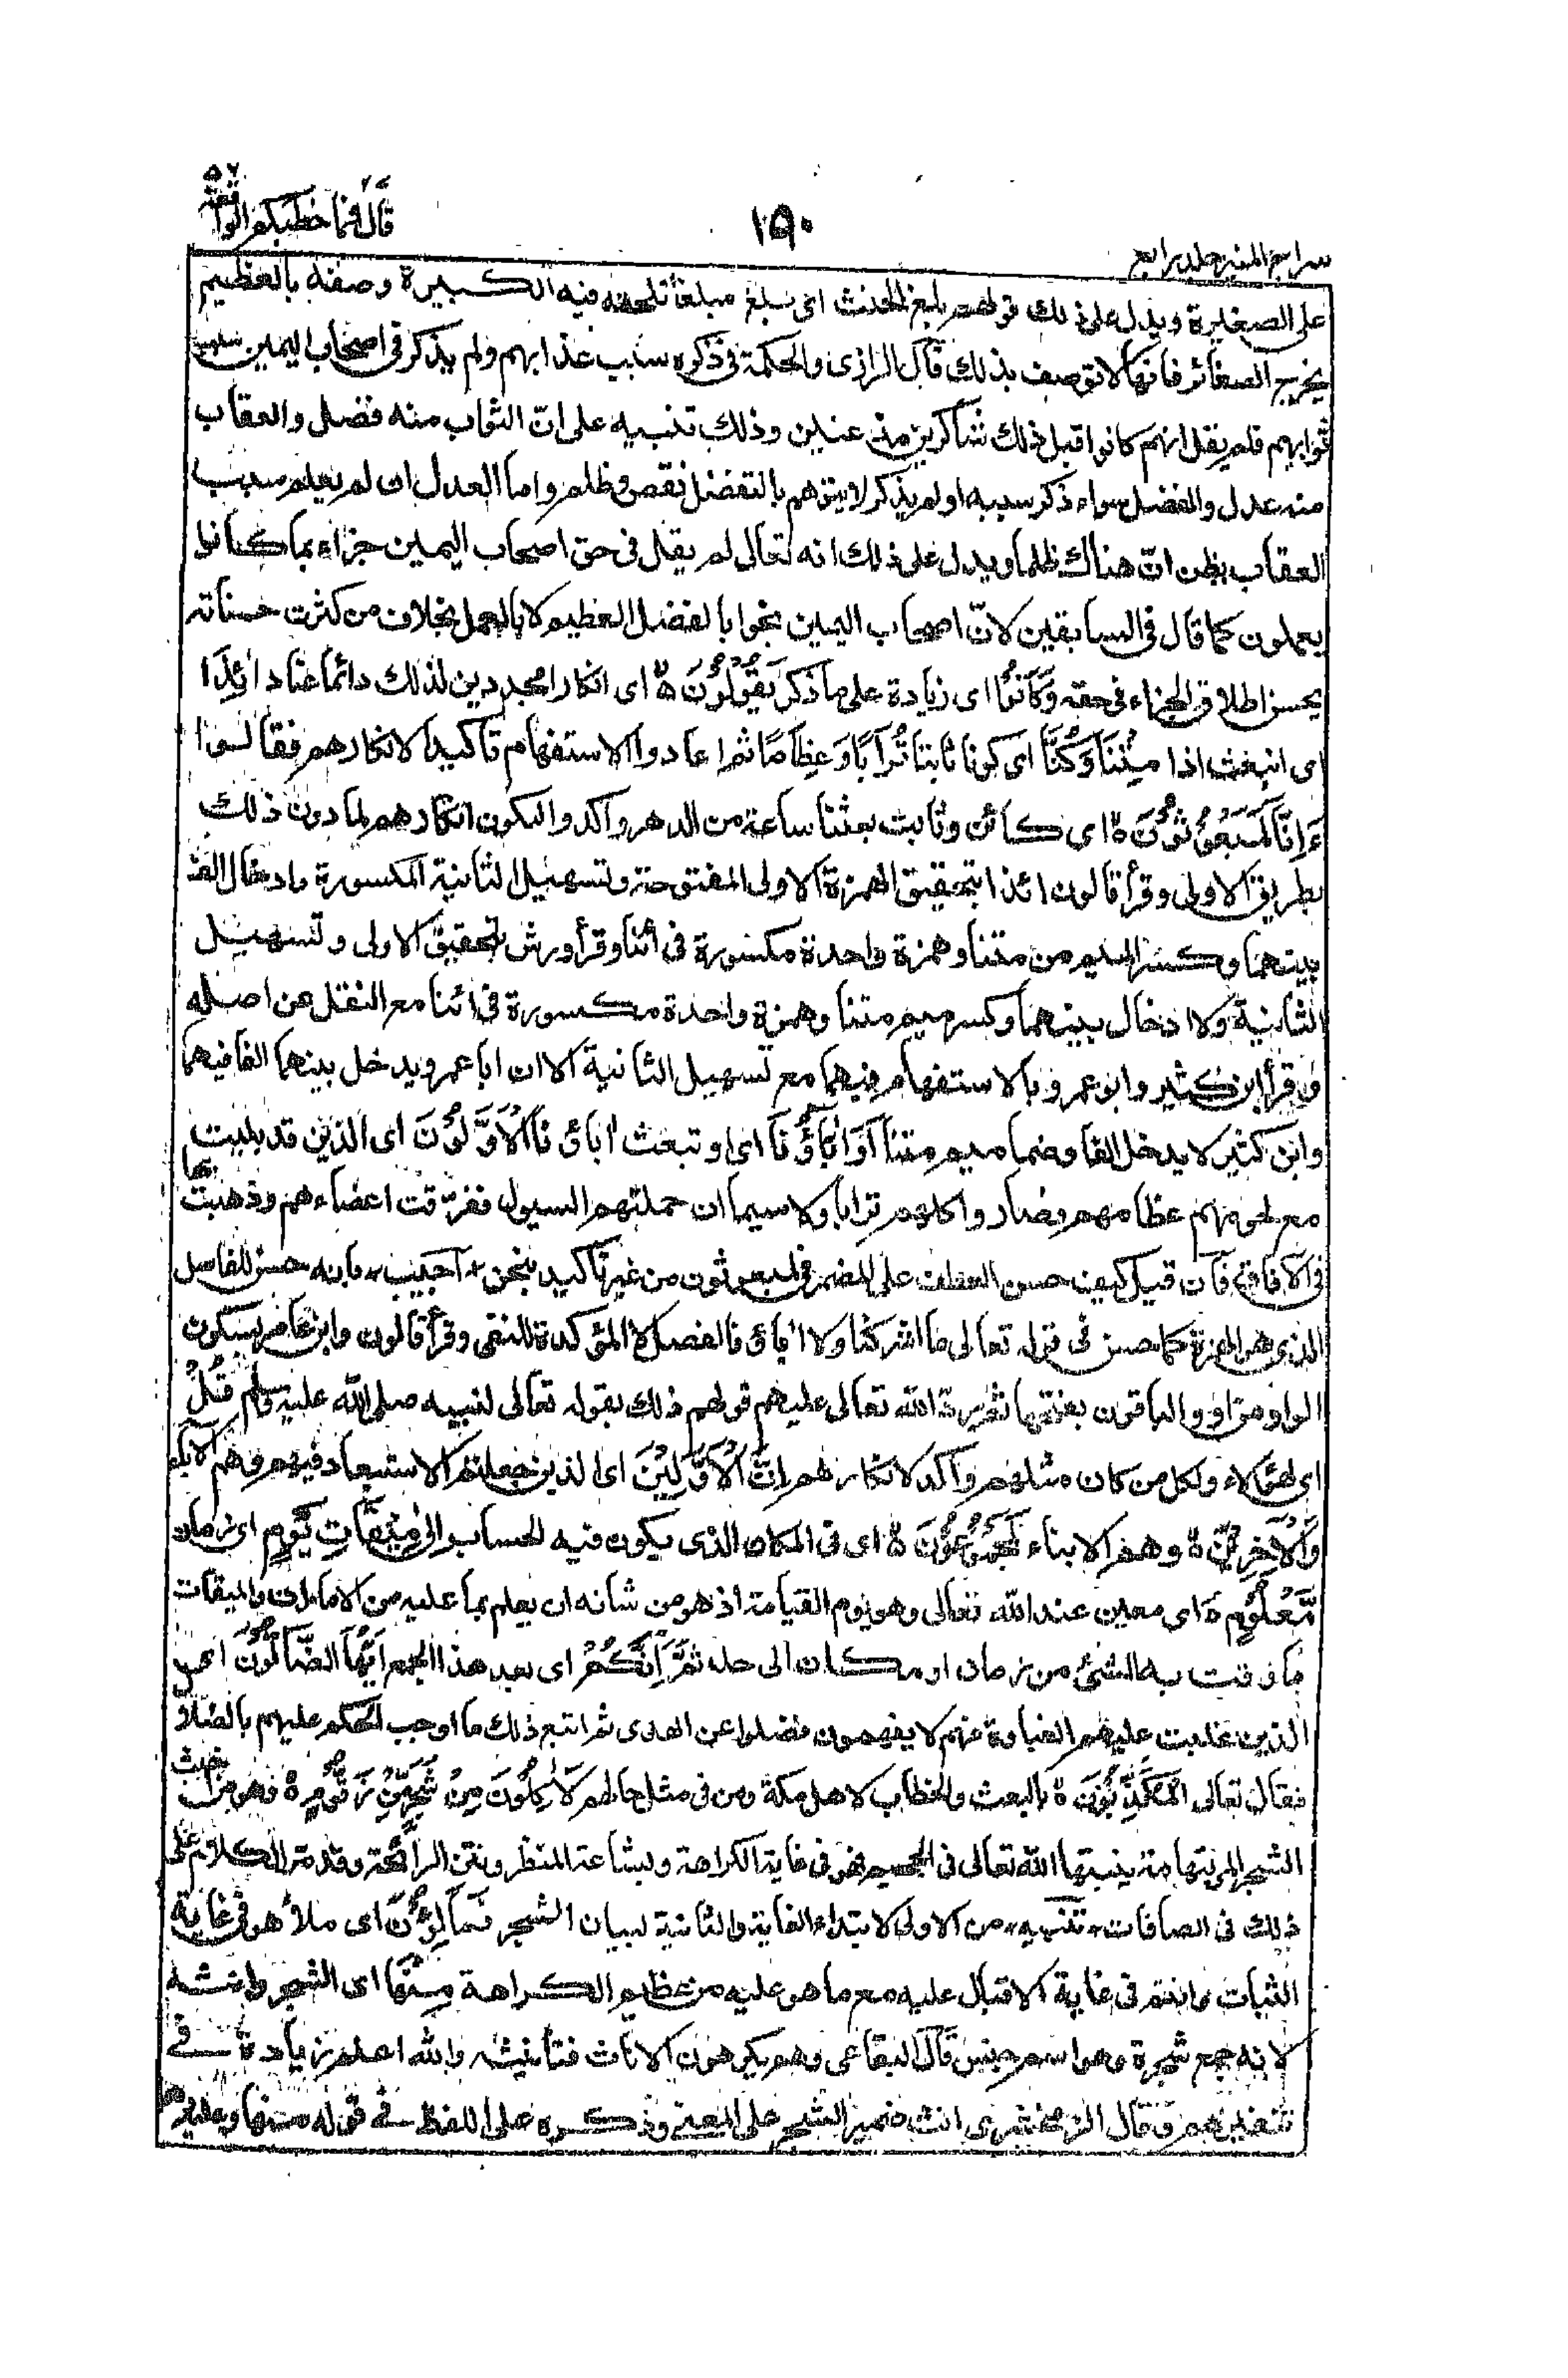 سراج المنير جلد رابع
١٥٠
قال فما خطبكم الواقعة ٥٦
على الصغيرة ويدل على ذلك قولهم بلغ الحنث اى بلغ مبلغا تلحقه فيه الكبيرة وصفه بالعظيم
يخرج الصغائر فانها لا توصف بذلك قال الرازى والحكمة فى ذكره سبب عذابهم ولم يذكر فى اصحاب اليمين سبب
ثوابهم فلم يقل انهم كانوا قبل ذلك شاكرين مذعنين وذلك تنبيه على انّ الثواب منه فضل والعقاب
منه عدل والفضل سواء ذكر سببه او لم يذكر لا يتوهم بالتفضل نقص وظلم واما العدل ان لم يعلم سبب
العقاب يظن انّ هناك ظلما ويدل على ذلك انه تعالى لم يقل فى حق اصحاب اليمين جزاء بما كانوا
يعملون كما قال فى السابقين لانّ اصحاب اليمين نجوا بالفضل العظيم لا بالعمل بخلاف من كثرت حسناته
يحسن اطلاق الجزاء فى حقه وَكَانُوْا اى زيادة على ما ذكر يَقُوْلُوْنَ ه اى انكارا مجددين لذلك دائما عنادا ئِذَا
اى انبعث اذا مِتْنَا وَكُنَّا اى كونا ثابتا تُرَابًا وَّعِظَامًا ثم اعادوا الاستفهام تاكيدا لانكارهم فقالوا
ءَاِنَّا لَمَبْعُوْثُوْنَ ه اى كائن وثابت بعثنا ساعة من الدهر واكد واليكون انكارهم لما دون ذلك
بطريق الاولى وقرأ قالون ائذا بتحقيق الهمزة الاولى المفتوحة وتسهيل الثانية المكسورة وادخال الف
بينهما وكسر الميم من متنا وهمزة واحدة مكسورة فى ائنا وقرأ ورش بتحقيق الاولى وتسهيل
الثانية ولا ادخال بينهما وكسر ميم متنا وهمزة واحدة مكسورة فى ائنا مع النقل على اصله
وقرأ ابن كثير وابو عمرو بالاستفهام فيهما مع تسهيل الثانية الا ان ابا عمرو يدخل بينهما الفا فيهما
وابن كثير لا يدخل الفا وضما ميم متنا اَوَاٰبَآؤُنَا اى او تبعث اٰباؤنا الْاَوَّلُوْنَ اى الذين قد بليت
مع لحومهم عظامهم وصاروا كلهم ترابا ولا سيما ان حملتهم السيول ففرّقت اعضاءهم وذهبت بها
فى الآفاق فان قيل كيف حسن العطف على المضمر فى لمبعوثون من غير تاكيد بنحن اجيب بانه حسن للفاصل
الذى هو الهمزة كما حسن فى قوله تعالى ما اشركنا ولا اٰباؤنا لفصل لا المؤكدة للنفى وقرأ قالون وابن عامر بسكون
الواو من او والباقون بفتحها ثم ردّ الله تعالى عليهم قولهم ذلك بقوله تعالى لنبيه صلى الله عليه وسلم قُلْ
اى لهؤلاء ولكل من كان مثلهم واكد لانكارهم اِنَّ الْاَوَّلِيْنَ اى الذين جعلتم الاستبعاد فيهم وهم الآباء
وَالْاٰخِرِيْنَ ه وهم الابناء لَمَجْمُوْعُوْنَ ه اى فى المكان الذى يكون فيه الحساب اِلٰى مِيْقَاتِ يَوْمٍ اى زمان
مَّعْلُوْمٍ ه اى معين عند الله تعالى وهو يوم القيامة اذ هو من شانه ان يعلم بما عليه من الامارات والميقات
ما وقت به الشئ من زمان او مكان الى حد ثُمَّ اِنَّكُمْ اى بعد هذا الجمع اَيُّهَا الضَّآلُّوْنَ اى
الذين غلبت عليهم الغباوة فهم لا يفهمون فضلوا عن الهدى ثم اتبع ذلك ما اوجب الحكم عليهم بالضلال
فقال تعالى الْمُكَذِّبُوْنَ ه بالبعث والخطاب لاهل مكة ومن فى مثل حالهم لَاٰكِلُوْنَ مِنْ شَجَرٍ مِّنْ زَقُّوْمٍ ه وهو من اخبث
الشجر المر بتهامة ينبتها الله تعالى فى الجحيم فهو فى غاية الكراهة وبشاعة المنظر ونتن الرائحة وقد مر الكلام على
ذلك فى الصافات تنبيه من الاولى لابتداء الغاية والثانية لبيان الشجر فَمَالِئُوْنَ اى ملأ هو فى غاية
الثبات وانتم فى غاية الاقبال عليه مع ما هو عليه من عظيم الكراهة مِنْهَا اى الشجر وانثه
لانه جمع شجرة وهو اسم جنس قال البقاعى وهم يكرهون الاناث فتأنيثه والله اعلم زيادة فى
تنفيرهم وقال الزمخشرى انث ضمير الشجر على المعنى وذكره على اللفظ فى قوله منها وعليه